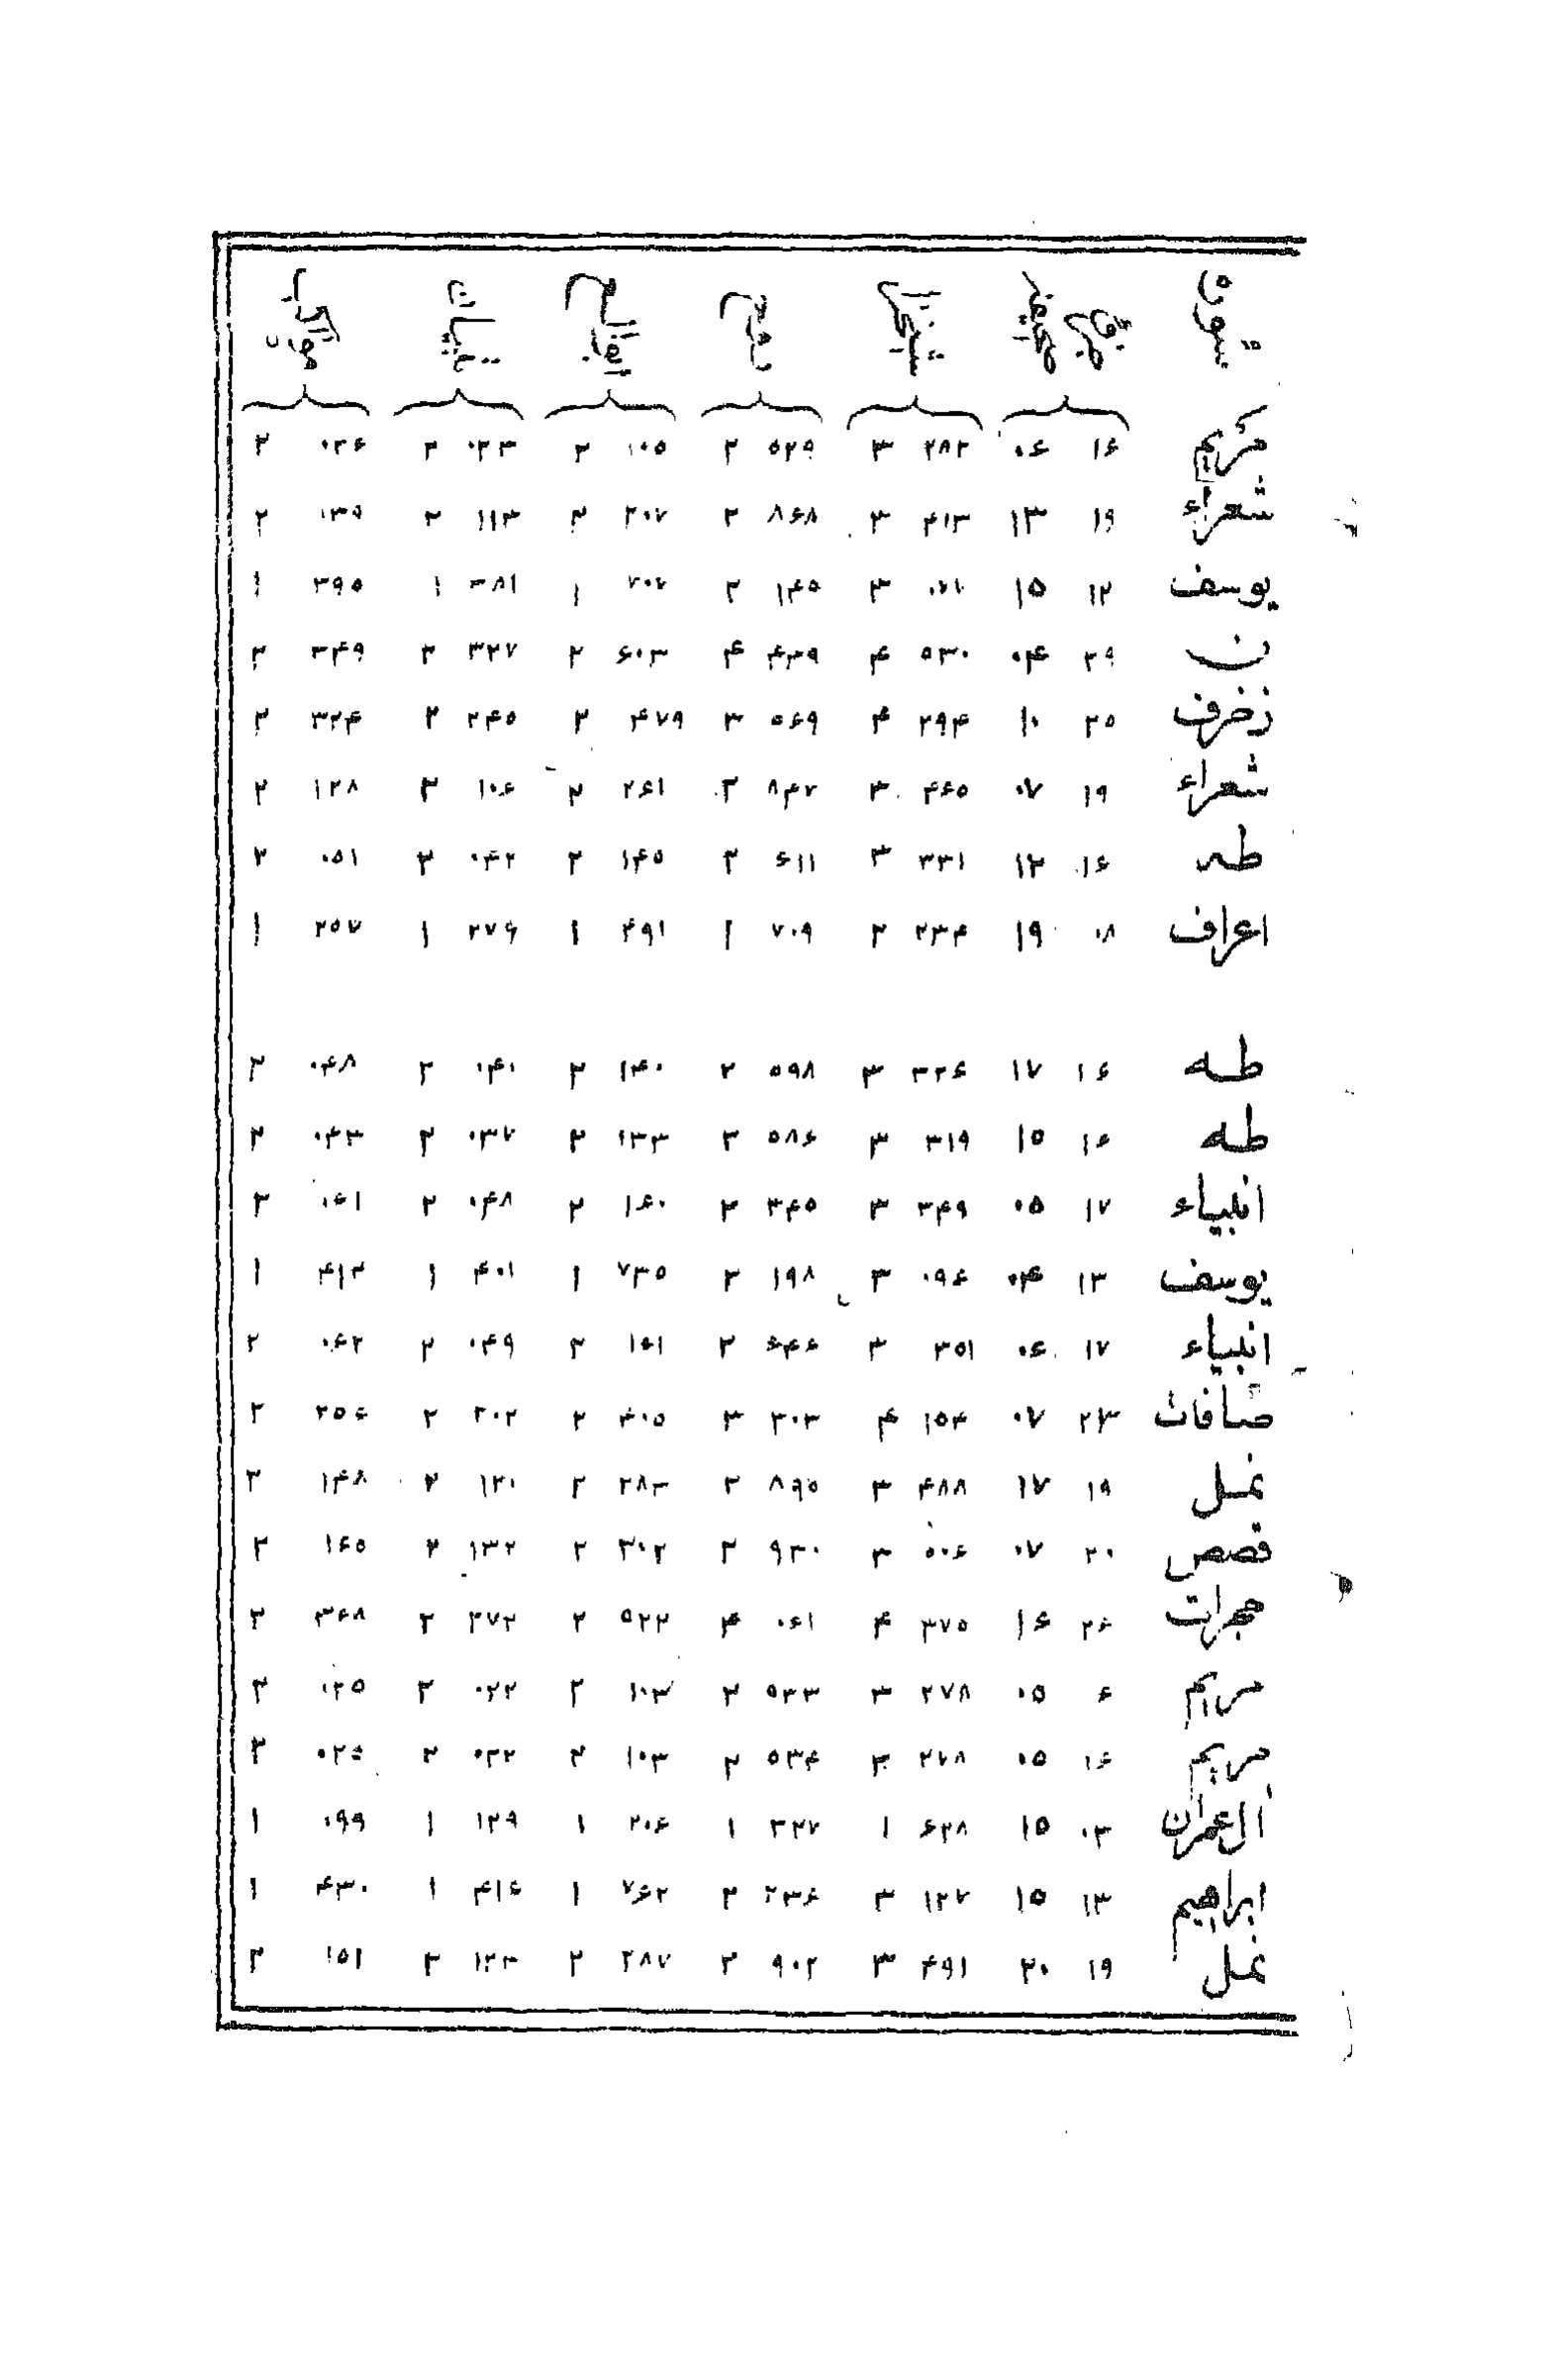 مریم ۱۶ ۰۶ ۲۸۲ ۳ ۵۲۹ ۲ ۱۰۵ ۲ ۰۲۳ ۲ ۰۲۶ ۲
شعراء ۱۹ ۱۳ ۴۱۳ ۳ ۸۶۸ ۲ ۲۰۷ ۲ ۱۱۳ ۲ ۱۳۹ ۲
یوسف ۱۲ ۱۵ ۳ ۱۴۵ ۲ ۷۰۷ ۱ ۳۸۱ ۱ ۳۹۵ ۱
ن ۲۹ ۰۴ ۵۳۰ ۴ ۴۳۹ ۴ ۶۰۳ ۲ ۳۲۷ ۲ ۳۴۹ ۲
زخرف ۲۵ ۱۰ ۲۹۴ ۴ ۵۶۹ ۳ ۴۷۹ ۲ ۲۴۵ ۲ ۳۲۴ ۲
شعراء ۱۹ ۰۷ ۴۶۵ ۳ ۸۴۷ ۲ ۲۶۱ ۲ ۱۰۶ ۲ ۱۲۸ ۲
طه ۱۶ ۱۲ ۳۳۱ ۳ ۶۱۱ ۲ ۱۴۵ ۲ ۰۴۲ ۲ ۰۵۱ ۲
اعراف ۰۸ ۱۹ ۲۳۴ ۲ ۷۰۹ ۱ ۴۹۱ ۱ ۲۷۶ ۱ ۲۵۷ ۱
طه ۱۶ ۱۷ ۳۲۶ ۳ ۵۹۸ ۲ ۱۴۰ ۲ ۰۴۰ ۲ ۰۴۸ ۲
طه ۱۶ ۱۵ ۳۱۹ ۳ ۵۸۶ ۲ ۱۳۳ ۲ ۰۳۷ ۲ ۰۴۳ ۲
انبیاء ۱۷ ۰۵ ۳۴۹ ۳ ۳۴۵ ۲ ۱۶۰ ۲ ۰۴۸ ۲ ۰۶۱ ۲
یوسف ۱۳ ۰۴ ۰۹۶ ۳ ۱۹۸ ۲ ۷۳۵ ۱ ۴۰۱ ۱ ۴۱۲ ۱
انبیاء ۱۷ ۰۶ ۳۵۱ ۳ ۶۴۶ ۲ ۱۶۱ ۲ ۰۴۹ ۲ ۰۶۲ ۲
صافات ۲۳ ۰۷ ۱۵۴ ۴ ۳۰۳ ۳ ۴۰۵ ۲ ۲۰۲ ۲ ۲۵۶ ۲
نمل ۱۹ ۱۷ ۴۸۸ ۳ ۸۹۵ ۲ ۲۸۳ ۲ ۱۲۰ ۲ ۱۴۸ ۲
قصص ۲۰ ۰۷ ۵۰۶ ۳ ۹۳۰ ۲ ۳۰۲ ۲ ۱۳۲ ۲ ۱۶۵ ۲
حجرات ۲۶ ۱۶ ۳۷۵ ۴ ۰۶۱ ۴ ۵۲۲ ۲ ۲۷۲ ۲ ۳۶۸ ۲
مریم ۶ ۰۵ ۲۷۸ ۳ ۵۳۳ ۲ ۱۰۳ ۲ ۰۲۲ ۲ ۰۲۵ ۲
مریم ۱۶ ۰۵ ۲۷۸ ۳ ۵۳۴ ۲ ۱۰۳ ۲ ۰۲۲ ۲ ۰۲۵ ۲
ال عمران ۰۳ ۱۵ ۶۲۸ ۱ ۳۲۷ ۱ ۲۰۶ ۱ ۱۲۹ ۱ ۰۹۹ ۱
ابراهیم ۱۳ ۱۵ ۱۲۷ ۳ ۲۳۶ ۲ ۷۶۲ ۱ ۴۱۶ ۱ ۴۳۰ ۱
نمل ۱۹ ۲۰ ۴۹۱ ۳ ۹۰۲ ۲ ۲۸۷ ۲ ۱۲۳ ۲ ۱۵۱ ۲